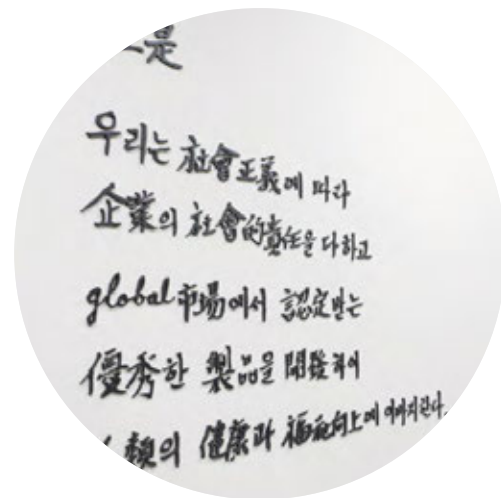 是
우리는 社會正義에 따라
企業의 社會的責任을 다하고
global 市場에서 認定받는
優秀한 製品을 開發하여
類의 健康과 福祉向上에 이바지한다.